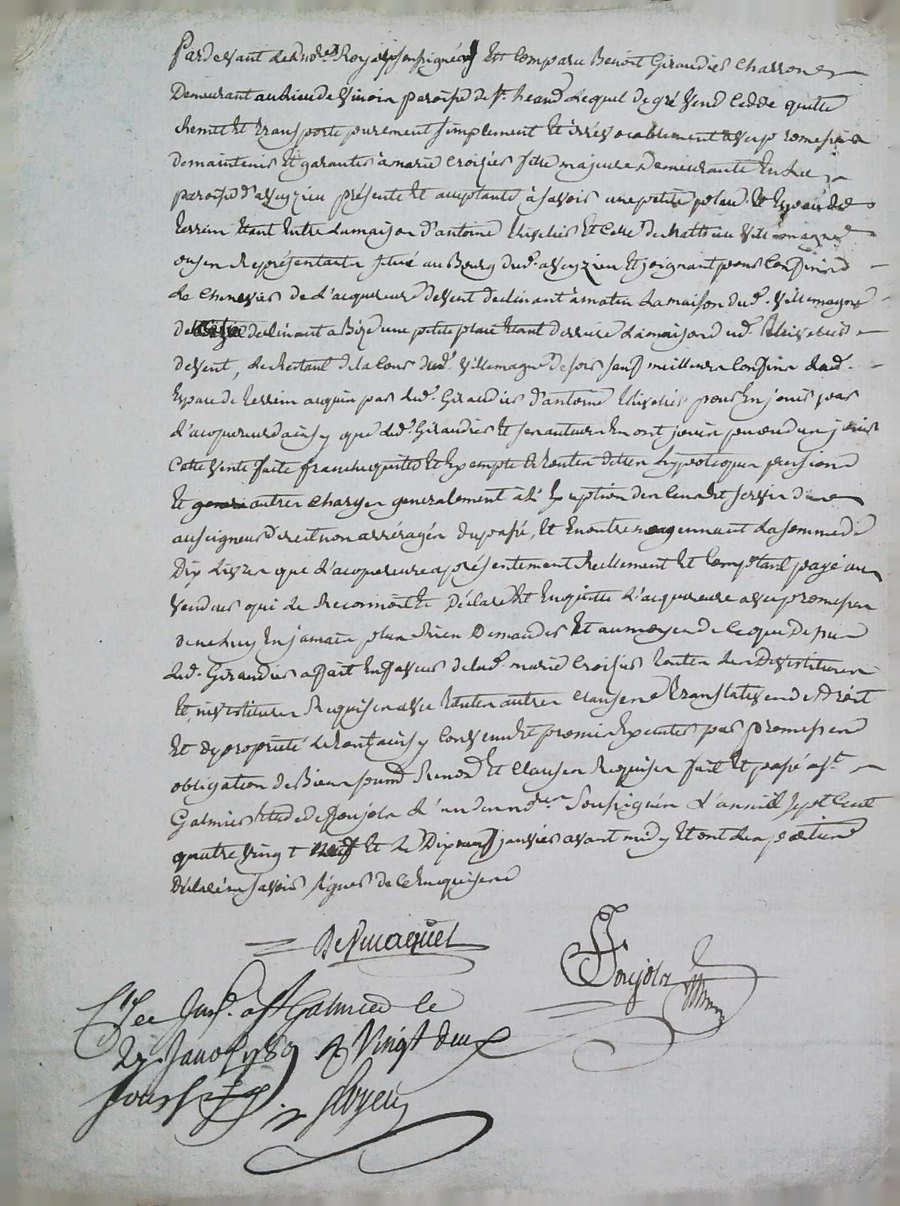 Pardevant les No.res Royaux soussignés Est Comparu Benoit Giraudier Charron
Demeurant au lieu de paroisse de St heand Lequel de gré Vend Cedde quitte
Remet Et transporte purement simplement Et irrévocablement avec promesse
de maintenir Et garantir à marie Croisier fille majeure Demeurante En la
paroisse d'aveyzieu présente Et acceptante à savoir une petite place Et Espace de
terrein Etant Entre la maison d'antoine Et Celle de Matthieu Villemagne
ou ses Représentants situé au Bourg dud. aveyzieu Et joignant pour Confins
Le Chenevier de L'acquereure de Vent declinant à matin La maison dud. Villemagne
de declinant a Bize une petite place Etant Derrier La maison dud.
de Vent, Le Restant de la Cour dud. Villemagne de soir sauf meilleurs Confins Led.
Espace de terrein acquis par led. Giraudier d'antoine pour En jouir par
L'acquereure ainsy que led. Giraudier Et ses auteurs En ont jouis peu ou du jouir
Cette Vente faite franche quitte Et Exempte de toutes dettes hypotecques pensions
Et autres Charges generalement à L'Exception des Cens Et servis dus
au seigneur direct non arréragés du passé, Et En outre moyennant La somme de
Dix Livres que L'acquereure a présentement Reellement Et Comptant payé au
Vendeur qui Le Reconnoit Et Déclare Et En quitte L'acquereure avec promesse
de ne luy En jamais plus Rien Demander Et au moyen de Ce que Dessus
Led. Giraudier a fait En faveur de lad. marie Croisier toutes Les Devestitures
Et investitures Requises avec toutes autres Clauses translatives de Droit
Et de propriété Le tout ainsy Convenu Et promis Executer par promesses
obligation de Biens soum.ons Renon.ons Et Clauses Requises fait Et passé a St
Galmier Etude de Ponjols L'un des no.res Soussignés L'an mil Sept Cent
quatre Vingt neuf Et Le Dix neuf janvier avant midy Et ont Les parties
Déclaré ne savoir signer de Ce Enquises
Ponjols
C.lé Insé. a St Galmier le
27 Janv. 1789 R Vingt deux
sous